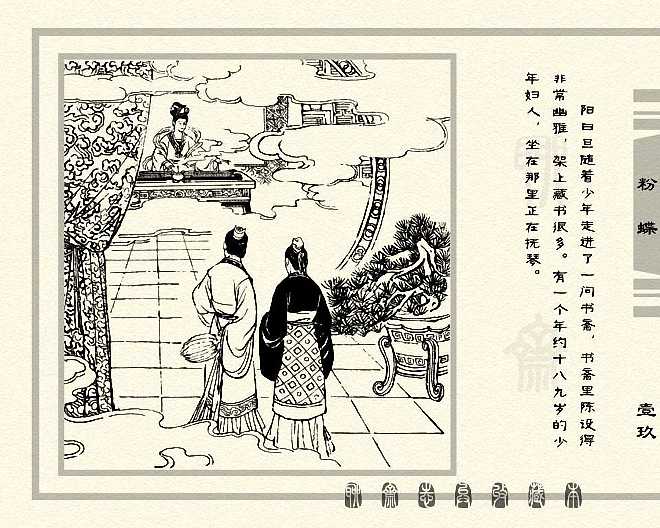 阳曰旦随着少年走进了一间书斋，书斋里陈设得
非常幽雅，架上藏书很多。有一个年约十八九岁的少
年妇人，坐在那里正在抚琴。
粉蝶
壹玖
聊斋志异收藏本